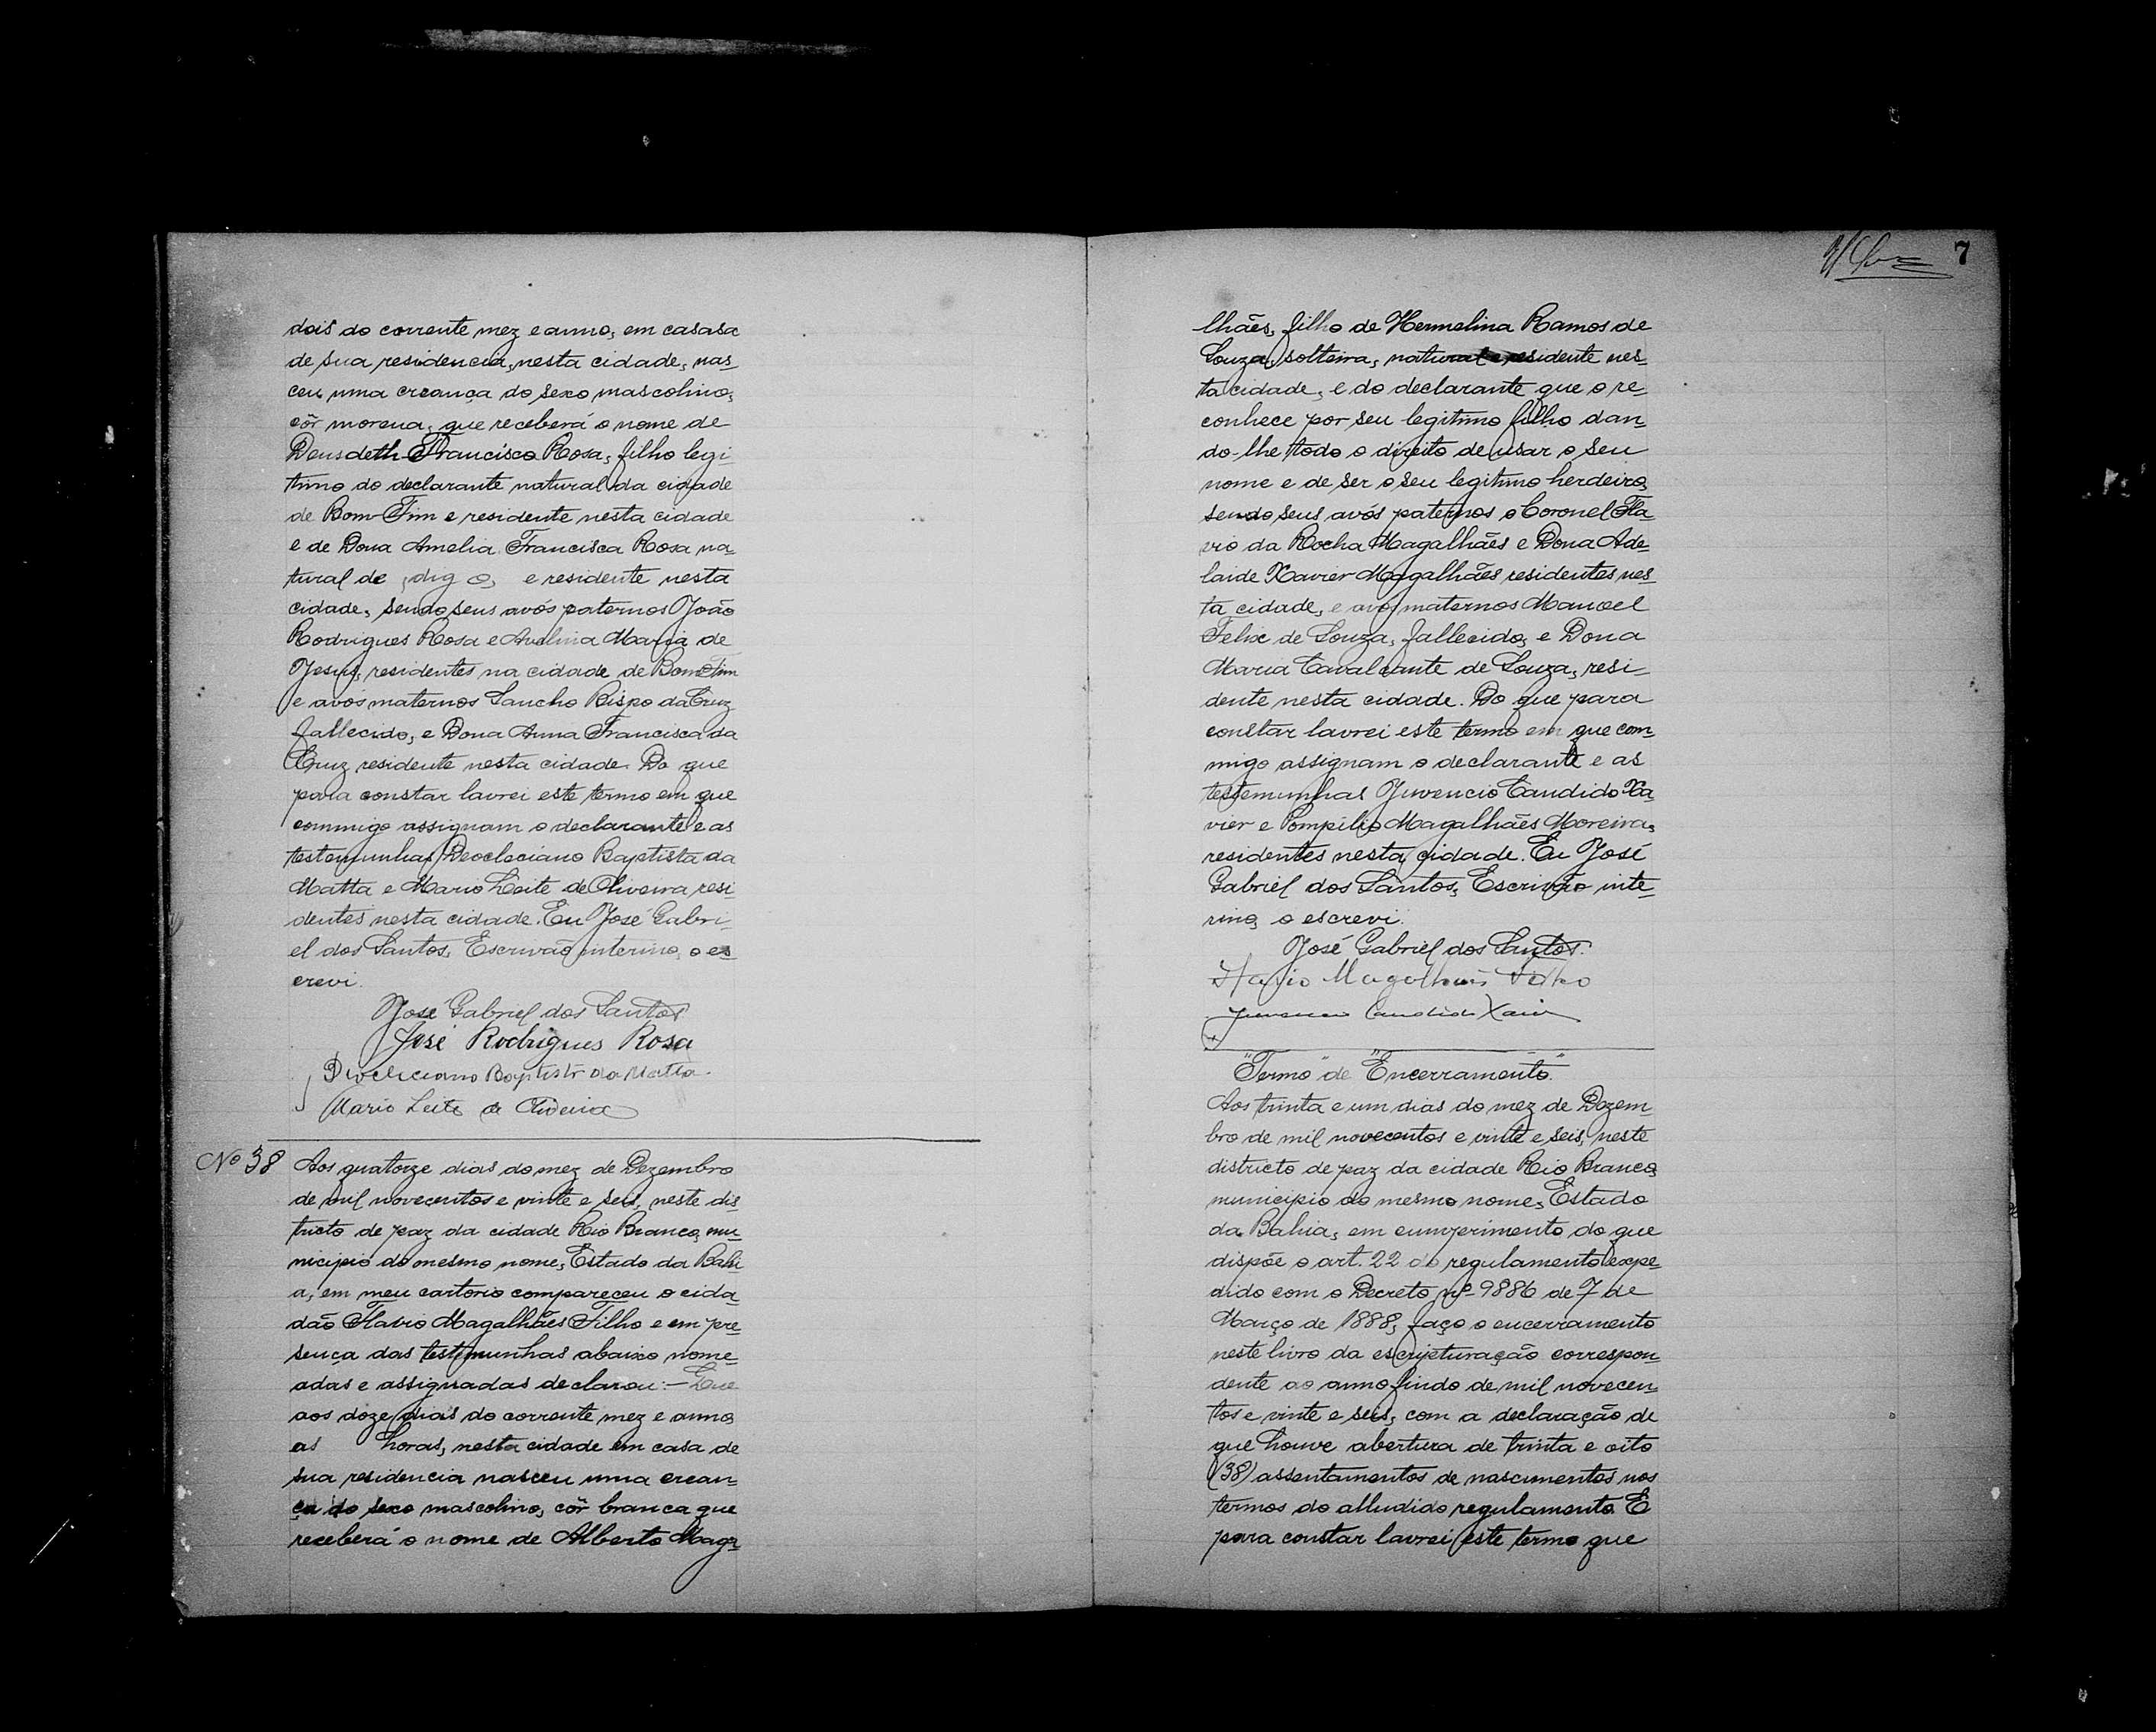 dois do corrente mez e anno, em casasa
de sua residencia, nesta cidade, nas-
ceu uma creança do sexo mascolino,
côr morena, que receberá o nome de
Deusdeth Francisco Rosa, filho legi-
timo do declarante natural da cidade
de Bom-Fim e residente nesta cidade
e de Dona Amelia Francisca Rosa na-
tural de , digo, e residente nesta
cidade, sendo seus avós paternos João
Rodrigues Rosa e Avelina Maria de
Jesus, residentes na cidade de Bom-Fim
e avós maternos Sancho Bispo da Cruz
fallecido, e Dona Anna Francisca da
Cruz residente nesta cidade. Do que
para constar lavrei este termo em que
commigo assignam o declarante e as
testemunhas Deocleciano Baptista da
Matta e Mario Leite de Oliveira resi-
dentes nesta cidade. Eu José Gabri-
el dos Santos, Escrivão interino, o es-
crevi.
José Gabriel dos Santos
José Rodrigues Rosa
Diocleciano Baptista da Matta.
Mario Leite de Oliveira
Nº 38 Aos quatorze dias do mez de Dezembro
de mil novecentos e vinte e seis, neste dis-
tricto de paz da cidade Rio Branco, mu-
nicipio do mesmo nome, Estado da Bahi-
a, em meu cartorio compareceu o cida-
dão Flavio Magalhães Filho e em pre-
sença das testemunhas abaixo nome-
adas e assignadas declarou:- Que
aos doze dias do corrente mez e anno,
as horas, nesta cidade em casa de
sua residencia nasceu uma crean-
ça do sexo mascolino, côr branca que
receberá o nome de Alberto Maga-
7
lhães, filho de Hermelina Ramos de
Souza, solteira, natural e residente nes-
ta cidade, e do declarante que o re-
conhece por seu legitimo filho dan-
do-lhe todo o direito de usar o seu
nome e de ser o seu legitimo herdeiro,
sendo seus avós paternos o Coronel Fla-
vio da Rocha Magalhães e Dona Ade-
laide Xavier Magalhães residentes nes-
ta cidade, e avós maternos Manoel
Felix de Souza, fallecido, e Dona
Maria Cavalcante de Souza, resi-
dente nesta cidade. Do que para
constar lavrei este termo em que com-
migo assignam o declarante e as
testemunhas Juvencio Candido Xa-
vier e Pompilio Magalhães Moreira,
residentes nesta cidade. Eu José
Gabriel dos Santos, Escrivão inte-
rino, o escrevi.
José Gabriel dos Santos.
Flavio Magalhães Filho
Juvencio Candido Xavier
"Termo" de "Encerramento"
Aos trinta e um dias do mez de Dezem-
bro de mil novecentos e vinte e seis, neste
districto de paz da cidade Rio Branco,
municipio do mesmo nome, Estado
da Bahia, em cumprimento do que
dispõe o art. 22 do regulamento expe-
dido com o Decreto nº 9886 de 7 de
Março de 1888, faço o encerramento
neste livro da escripturação correspon-
dente ao anno findo de mil novecen-
tos e vinte e seis, com a declaração de
que houve abertura de trinta e oito
(38) assentamentos de nascimentos nos
termos do alludido regulamento. E
para constar lavrei este termo que